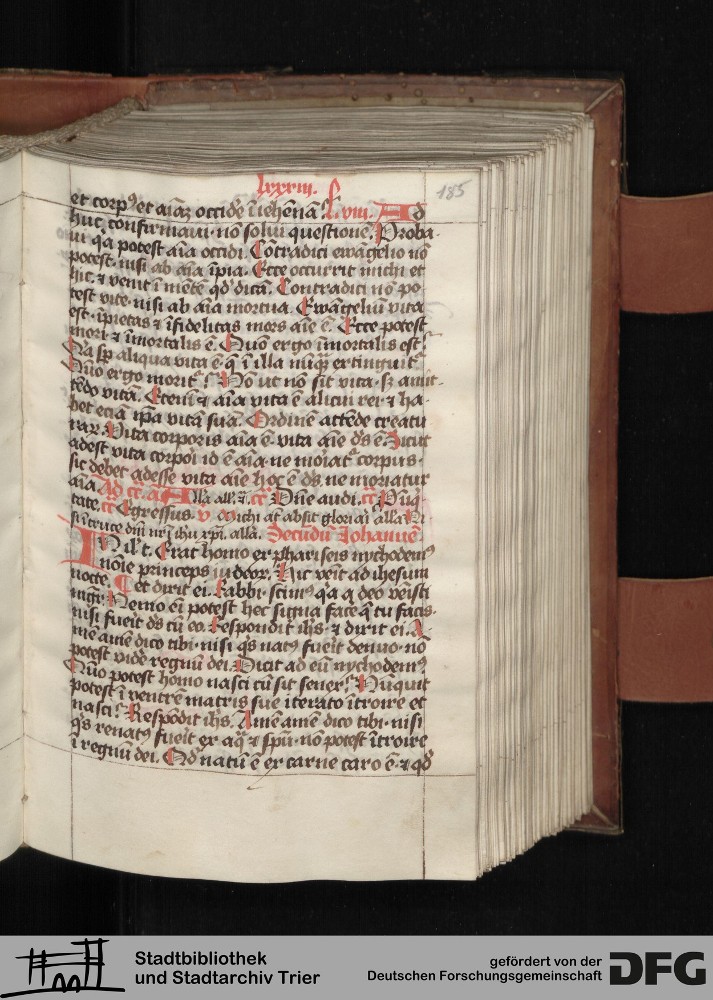 lxxxiii.
185
et corpꝰ et aīaꝫ occidē ī iehēnā. L viii. Ad
huc confirmaui. nō solui questionē. Proba-
ui q̄a potest aīa occidi. Cōtradici ewāgelio nō
potest. nisi ab aīa īpia. Ecce occurrit michi et
hic. ⁊ venit ī mētē qd̓ dicā. Contradici nō po
test vite. nisi ab aīa mortua. Ewāgeliū vita
est. īpietas ⁊ īfidelitas mors aīe ē. Ecce potest
mori. ⁊ īmortalis ē. Quō ergo īmortalis est?
Q̄a sp̄ aliqua vita ē. q̄ ī illa nūqꝫ extinguit᷑
Quō ergo morit᷑? Nō ut nō sit vita. sꝫ amit-
tēdo vitā. Etenī ⁊ aīa vita ē alicui rei. ⁊ ha-
bet eciā ip̄a vitā suā. Ordinē attēde creatu
rar. Vita corporis aīa ē. vita aīe dſ ē. Sicut
adest vita corpoi id ē aīa. ne moiat᷑ corpus.
sic debet adesse vita aīe hoc ē dſ. ne moriatur
aīa.
Dn̄e audi.
Egressus. v Michi at absit gloriai alla
sī ī cruce dnī nrī ihu xpī. alla. Secūdū Iohannē.
In il̓ t. Erat homo ex phariseis nychodemꝰ
nōie princeps iudeoꝝ. Hic veīt ad ihesum
nocte. Et dixit ei. Rabbi. scimꝰ q̄a a deo veīsti
mgr̄. Nemo eī potest hec signa facē q̄ tu facis.
nisi fueīt dſ cū eo. Respondit ihſ. ⁊ dixit ei. A-
mē amē dico tibi. nisi qſ natꝰ fueīt denuo. nō
potest vidē regnū dei. Dicit ad eū nychodemꝰ.
Quō potest homo nasci cū sit senex? Nūquit
potest ī ventrē matris sue iterato ītroire et
nasci? Respōdit ihſ. Amē amē dico tibi. nisi
qſ renatꝰ fueīt ex aq̄ ⁊ spū. nō potest ītroire
ī regnū dei. Qd̓ natū ē ex carne caro ē. ⁊ qd̓
Stadtbibliothek
und Stadtarchiv Trier
gefördert von der
Deutschen Forschungsgemeinschaft
DFG